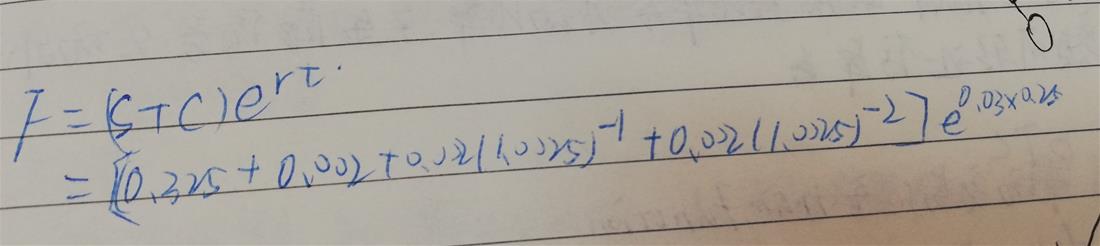 F = (S+C)e^{rτ}.
= [0.325 + 0.002 + 0.002(1.0025)^{-1} + 0.002(1.0025)^{-2}] e^{0.03×0.25}